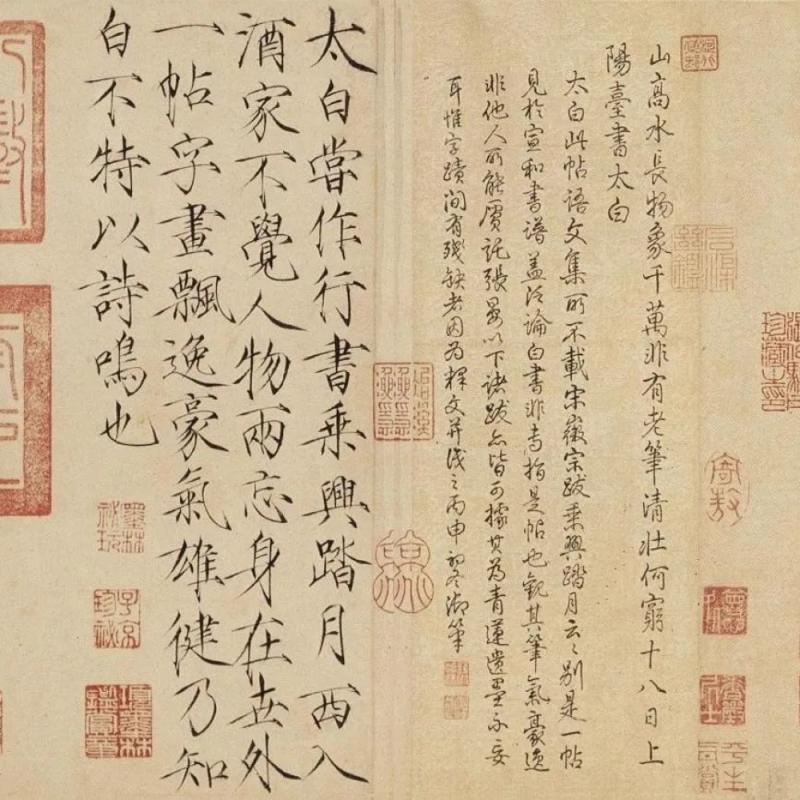 山高水長物象千萬非有老筆清壯何窮十八日上
陽臺書太白
太白此帖語文集所不載宋徽宗跋乘興踏月云云別是一帖
見於宣和書譜蓋泛論白書非專指是帖也觀其筆氣豪逸
非他人所能贋託張晏以下諸跋亦皆可據其為青蓮遺墨不妄
耳惟字蹟間有殘缺者因為釋文并識之丙申初冬御筆
太白嘗作行書乘興踏月西入
酒家不覺人物兩忘身在世外
一帖字畫飄逸豪氣雄健乃知
白不特以詩鳴也
寄敖
墨林祕玩
子京珍祕